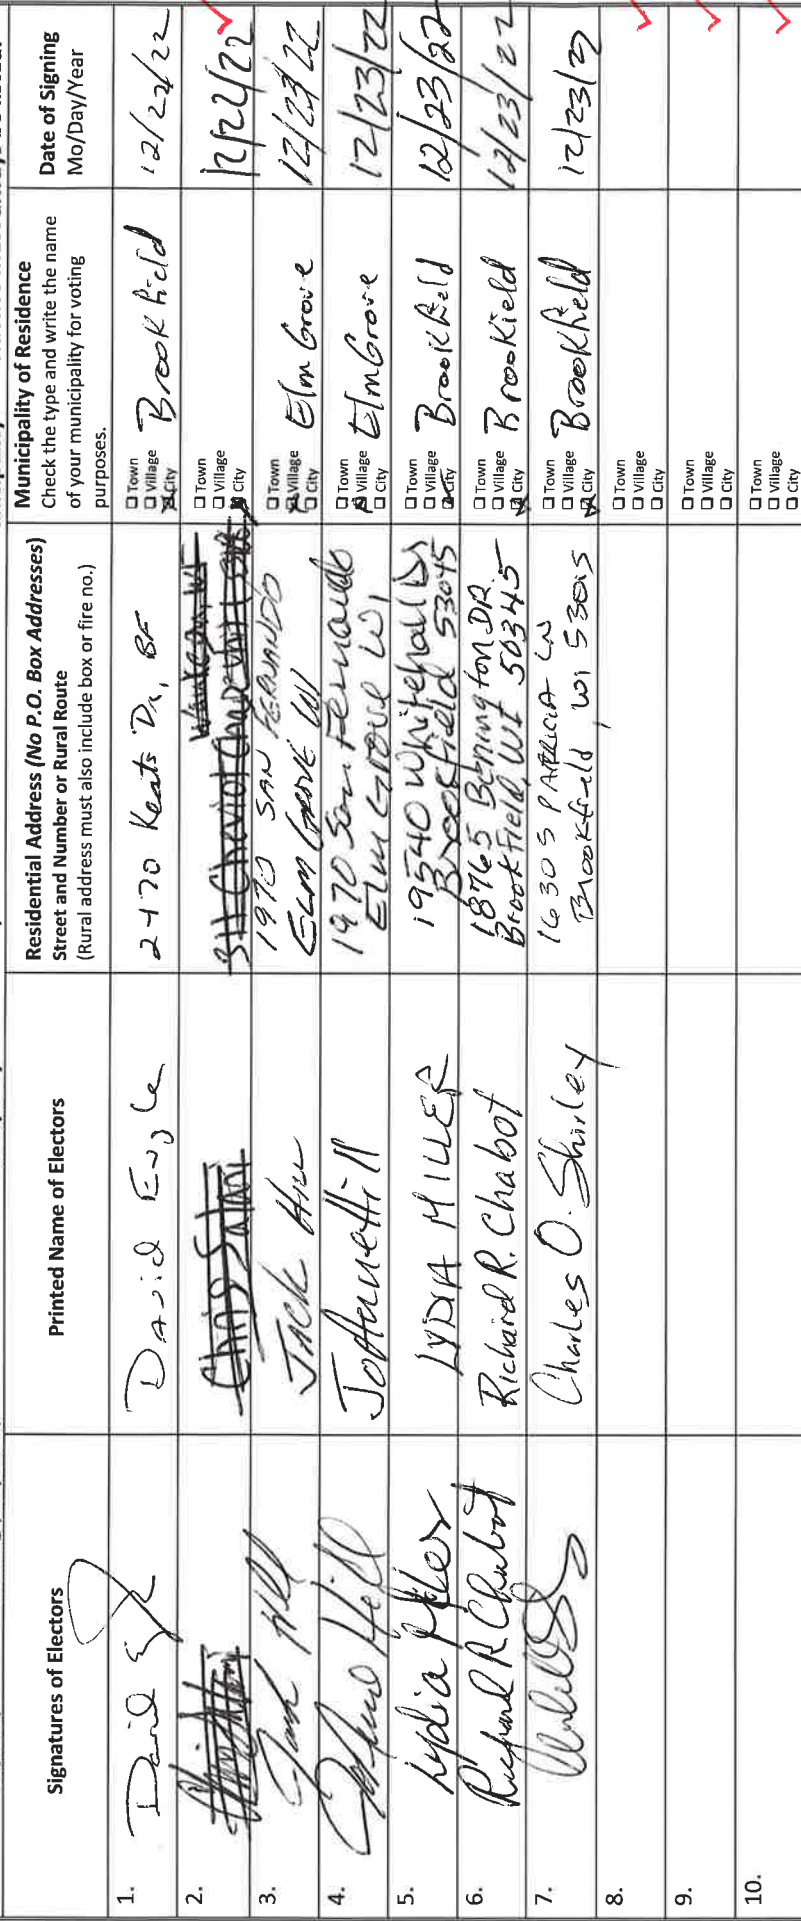 Signatures of Electors
Printed Name of Electors
Residential Address (No P.O. Box Addresses)
Street and Number or Rural Route
(Rural address must also include box or fire no.)
Municipality of Residence
Check the type and write the name
of your municipality for voting
purposes.
Date of Signing
Mo/Day/Year
1.
David
David Engle
2470 Keats Dr, BF
□ Town
□ Village
City
Brookfield
12/22/22
2.
□ Town
□ Village
City
12/22/22
3.
Jack Hill
Jack Hill
1970 SAN FERNANDO
ELM GROVE WI
□ Town
Village
□ City
Elm Grove
12/23/22
4.
JoAnne Hill
JoAnne Hill
1970 San Fernando
Elm Grove WI
□ Town
Village
□ City
Elm Grove
12/23/22
5.
Lydia Miller
LYDIA MILLER
19540 Whitehall Dr
Brookfield 53045
□ Town
□ Village
City
Brookfield
12/23/22
6.
Richard R Chabot
Richard R. Chabot
18765 Benington DR.
Brookfield, WI 50345
□ Town
□ Village
City
Brookield
12/23/22
7.
Charles O. Shirley
16305 PATRICIA LN
Brookfield WI 53015
□ Town
□ Village
City
Brookfield
12/23/22
8.
□ Town
□ Village
□ City
9.
□ Town
□ Village
□ City
10.
□ Town
□ Village
□ City